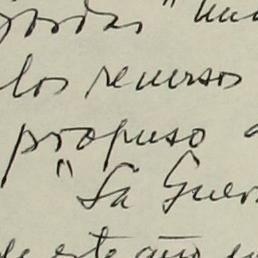 los recursos
propuso
"La Guer
de este año